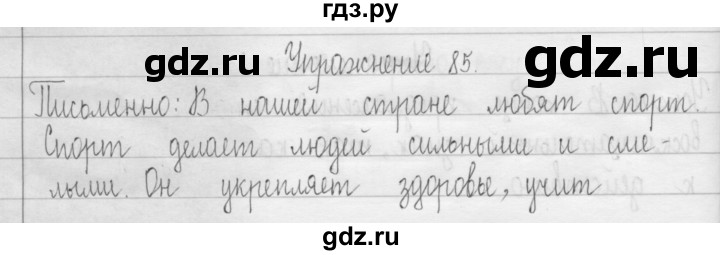 гдз.ру
Упражнение 85.
Письменно: В нашей стране любят спорт.
Спорт делает людей сильными и сме-
лыми. Он укрепляет здоровье, учит
gdz.ru
gdz.ru
gdz.ru